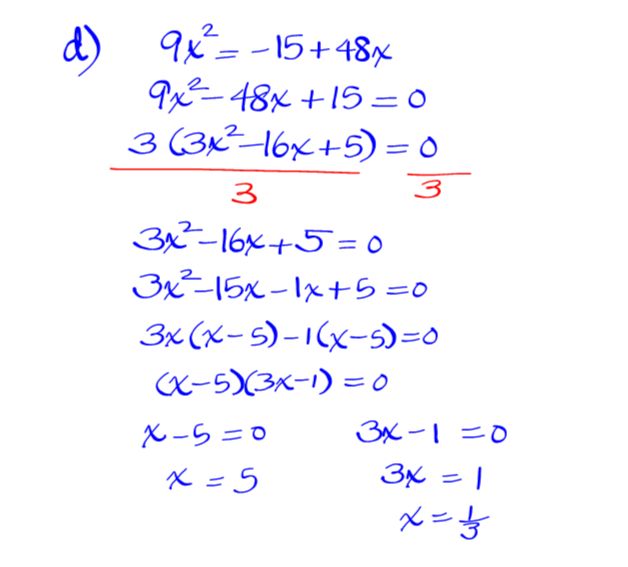 d) 9x² = -15 + 48x
9x² - 48x + 15 = 0
3 (3x² - 16x + 5) = 0
3 3
3x² - 16x + 5 = 0
3x² - 15x - 1x + 5 = 0
3x (x - 5) - 1(x - 5) = 0
(x - 5)(3x - 1) = 0
x - 5 = 0 3x - 1 = 0
x = 5 3x = 1
x = 1/3